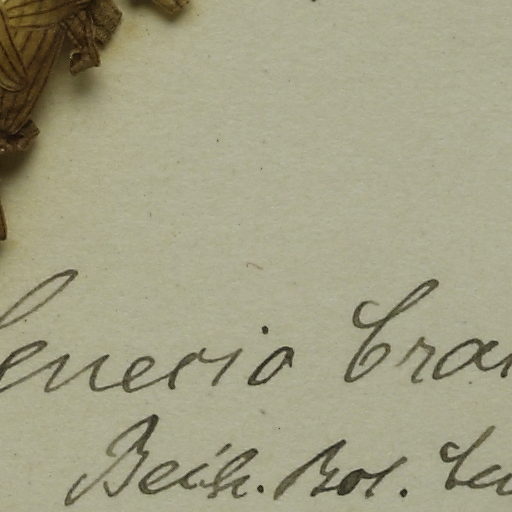 Senecio Cra
Beih. Bot. Ce